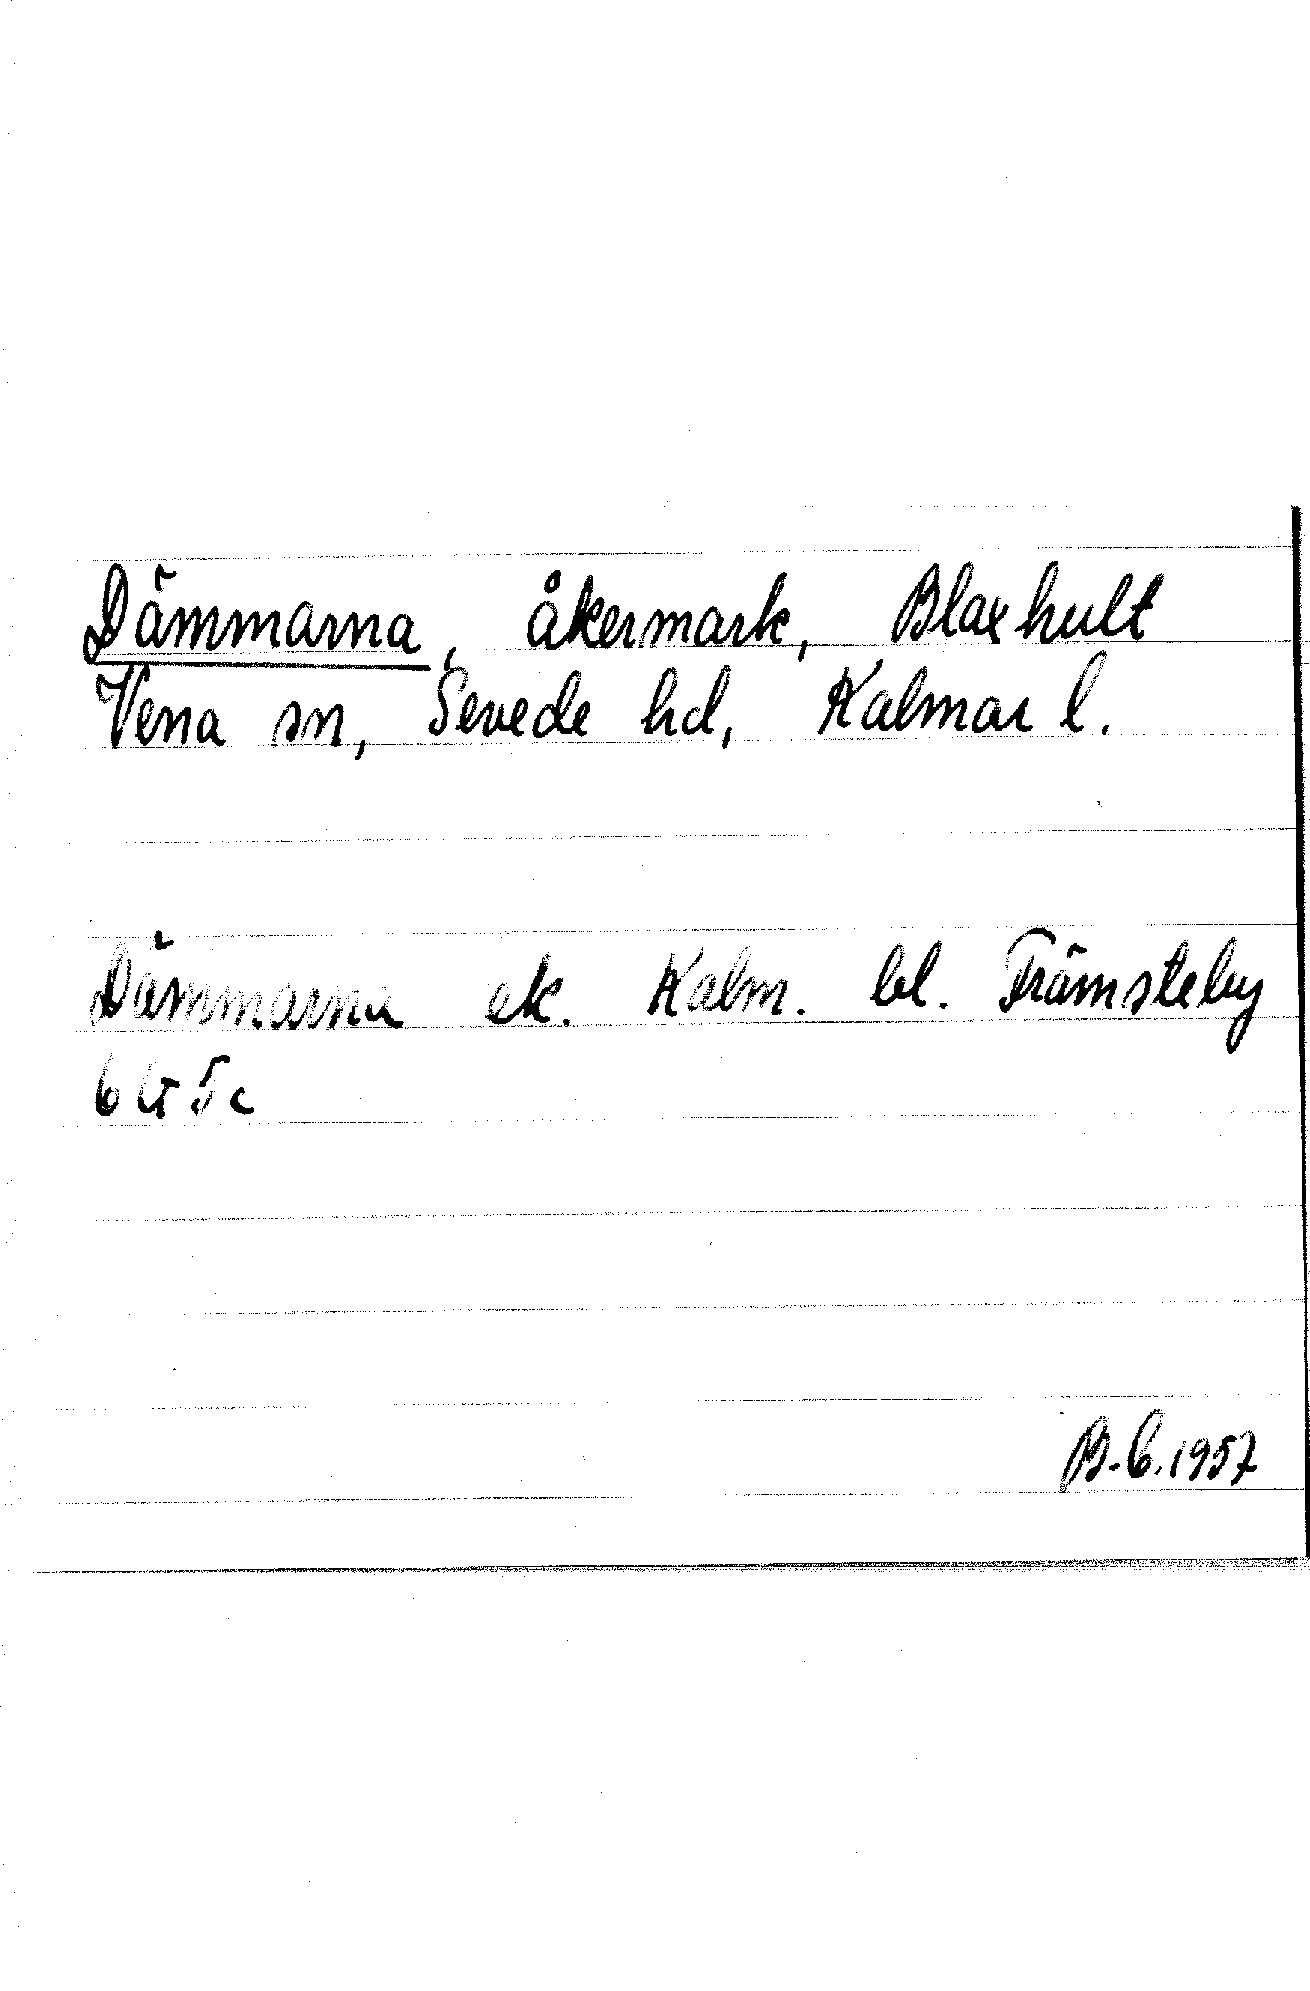 Dämmarna, åkermark, Blaxhult
Vena sn, Sevede hd, Kalmar l.
Dämmarna ek. Kalm. bl. Främsteby
6 G 5c
B.C. 1957